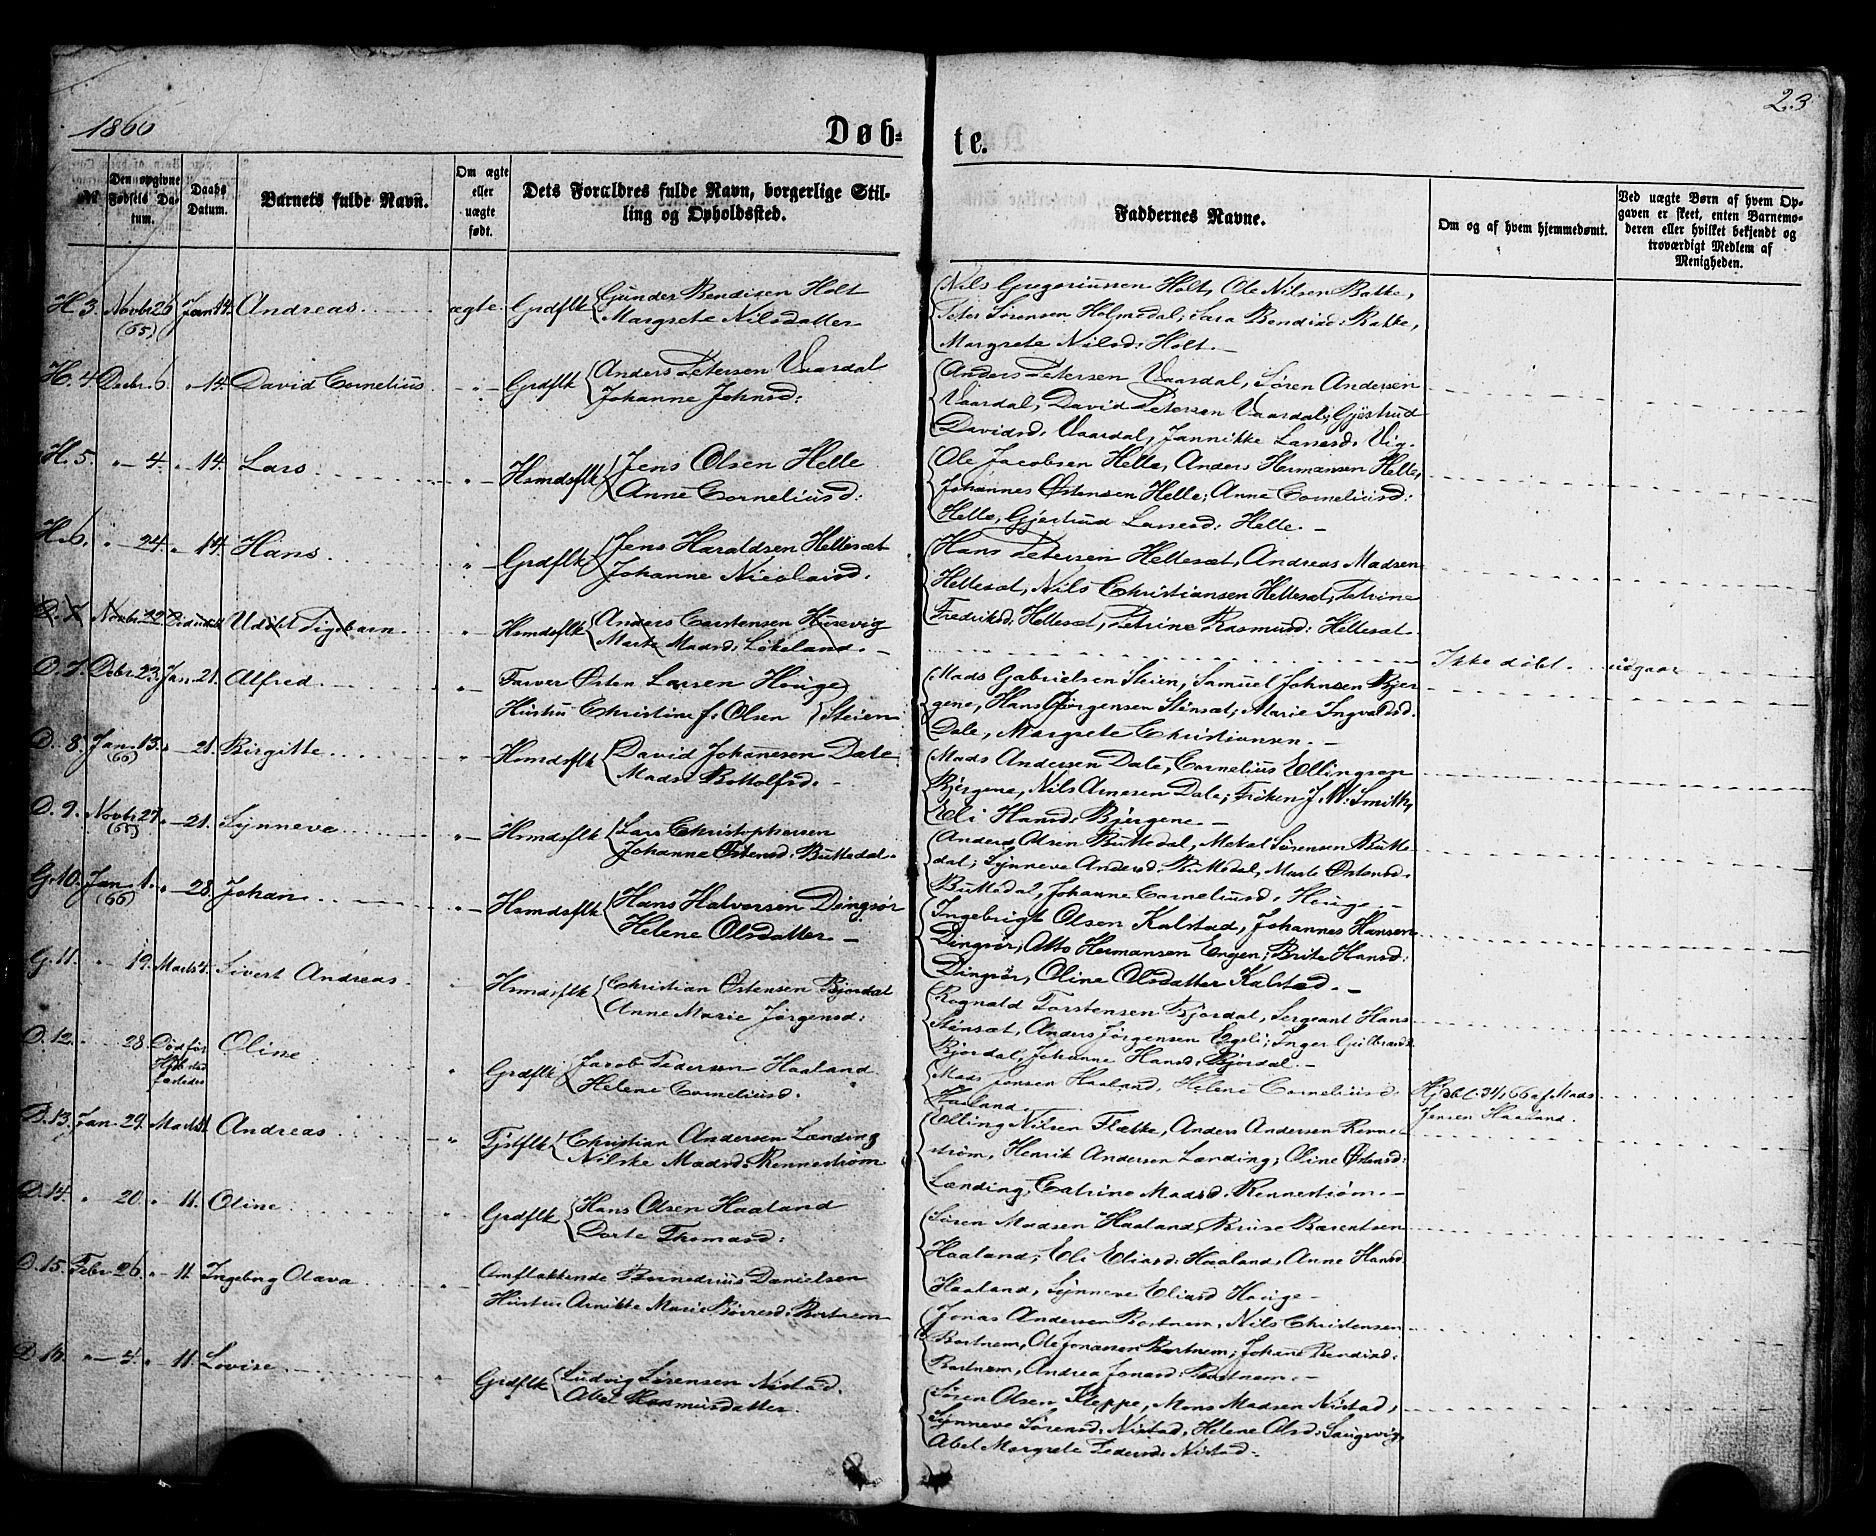 1866
23
Døb-
te.
№
Den opgivne Fødsels Da-tum.
Daabs Datum.
Barnets fulde Navn.
Om ægte eller uægte født.
Dets Forældres fulde Navn, borgerlige Stil-
ling og Opholdssted.
Faddernes Navne.
Om og af hvem hjemmedøbt.
Ved uægte Børn af hvem Op-
gaven er skeet, enten Barnemo-
deren eller hvilket bekjendt og
troværdigt Medlem af
Menigheden.
H. 3. Novbr 26 (65) Jan 14. Andreas ægte Grdflk Gunder Bendixen Holt
Margrete Nilsdatter
Nils Gregoriussen Holt, Ole Nilsen Bakke,
Peter Sørensen Holmedal; Sara Bendixd: Bakke,
Margrete Nilsd: Holt.
H. 4 Decbr. 6. " 14. David Cornelius " Grdflk Anders Petersen Vaardal
Johanne Johnsd:
Anders Petersen Vaardal, Søren Andersen
Vaardal, David Petersen Vaardal; Gjertrud
Davidsd. Vaardal, Jannikke Larsd. Vig.
H. 5. " 4. " 14. Lars " Hsmdsflk Jens Olsen Helle
Anne Corneliusd:
Ole Jacobsen Helle, Anders Hermansen Helle,
Johannes Østensen Helle; Anne Corneliusd:
Helle, Gjertrud Larsd: Helle.
H. 6. " 24. " 14. Hans " Grdflk Jens Haraldsen Hellesæt
Johanne Nicolaisd.
Hans Petersen Hellesæt, Andreas Madsen
Hellesæt, Nils Christiansen Hellesæt, Petrine
Fredriksd. Hellesæt, Petrine Rasmusd: Hellesæt.
D. 7 Novbr 22 Udøbt Pigebarn " Hsmdsflk Anders Carstensen Husevig
Marte Madsd: Løkeland.
Ikke døbt. udgaar
D. 7. Decbr 23. Jan 21. Alfred " Farver Østen Larsen Houge
Hustru Christine f. Olsen Steien
Mads Gabrielsen Steien, Samuel Johnsen Bjer-
gene, Hans Jørgensen Stensæt; Marie Ingvaldsd.
Dale, Margrete Christiansen.
D. 8. Jan. 13. (66) " 21. Birgitte " Hsmdsflk David Johannesen Dale
Madsi Bottolfsd.
Mads Andersen Dale, Cornelius Ellingsen
Bjergene, Nils Arnesen Dale; Frøken J. M. Smith,
Eli Hansd: Bjergene.
D. 9. Novbr 27. (65) " 21. Synneve " Hsmdsflk Lars Christophersen
Johanne Østensd: Buttedal.
Anders Olsen Buttedal, Mekal Sørensen Butte-
dal; Synneve Andersd. Buttedal, Marte Østensd.
Buttedal, Johanne Corneliusd. Houge.
G. 10. Jan 1. (66) " 28. Johan " Hsmdsflk Hans Halvorsen Dingsør
Helene Olsdatter
Ingebrigt Olsen Kalstad, Johannes Hansen
Dingsør, Otto Hermansen Engen; Brite Hansd:
Dingsør, Oline Olsdatter Kalstad.
G. 11. " 19. Marts 4. Sivert Andreas " Hsmdsflk Christian Østensen Bjordal
Anne Marie Jørgensd:
Rognald Torstensen Bjordal, Sergeant Hans
Stensæt, Anders Jørgensen Egeli; Inger Guldbrandsd.
Bjordal, Johanne Hansd. Bjordal.
D. 12. " 28. Død før Oline " Grdflk Jacob Pedersen Haaland
Helene Corneliusd.
Mads Jensen Haaland, Helene Corneliusd.
Haaland.
Hjdbt. 3/1 66 af Mads
Jensen Haaland.
D. 13. Jan 29. Marts 11. Andreas " Tjstflk Christian Andersen Lænding
Nilske Madsd: Rennestrøm
Elling Nilsen Flekke, Anders Andersen Renne-
strøm, Henrik Andersen Lænding; Oline Østensd:
Lænding, Catrine Madsd. Rennestrøm.
D. 14. " 20. " 11. Oline " Grdflk Hans Olsen Haaland
Dorte Thomasd:
Søren Madsen Haaland, Bruse Barentsen
Haaland; Eli Eliasd: Haaland, Anne Hansd.
Haaland, Synneve Eliasd Houge
D. 15. Febr 26. " 11. Ingeborg Olava " Omflakkende Bernedius Danielsen
Hustru Arnikke Marie Børresd: Bortnem
Jonas Andersen Bortnem, Nils Christensen
Bortnem, Ole Jonassen Bortnem; Johane Bendixd:
Bortnem, Andrea Jonasd: Bortnem.
D. 16. " 4. " 11. Lovise " Grdflk Ludvig Sørensen Nistad.
Abel Rasmusdatter.
Søren Olsen Kleppe, Mons Madsen Nistad,
Synneve Sørensd. Nistad, Helene Olsd: Saugevig,
Abel Margrete Pedersd. Nistad.